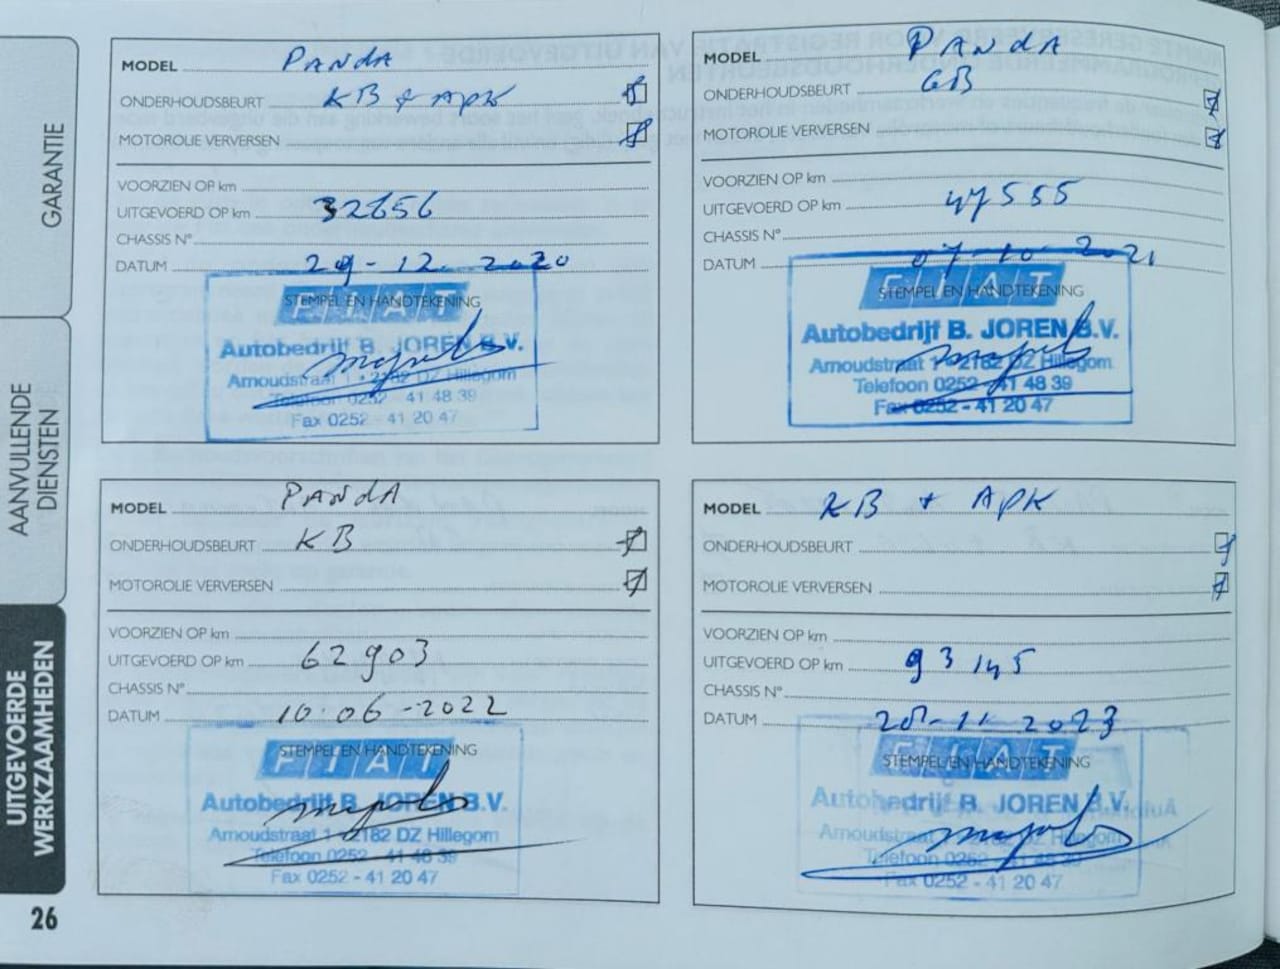 GARANTIE
AANVULLENDE
DIENSTEN
UITGEVOERDE
WERKZAAMHEDEN
26
MODEL PANdA
ONDERHOUDSBEURT KB + APK
MOTOROLIE VERVERSEN
VOORZIEN OP km
UITGEVOERD OP km 32656
CHASSIS N°
DATUM 29-12-2020
STEMPEL EN HANDTEKENING
FIAT
Autobedrijf B. JOREN B.V.
Arnoudstraat 1 - 2182 DZ Hillegom
Telefoon 0252 - 41 48 39
Fax 0252 - 41 20 47
MODEL PANdA
ONDERHOUDSBEURT GB
MOTOROLIE VERVERSEN
VOORZIEN OP km
UITGEVOERD OP km 47555
CHASSIS N°
DATUM 07-10-2021
STEMPEL EN HANDTEKENING
FIAT
Autobedrijf B. JOREN B.V.
Arnoudstraat 1 - 2182 DZ Hillegom
Telefoon 0252 - 41 48 39
Fax 0252 - 41 20 47
MODEL PANdA
ONDERHOUDSBEURT KB
MOTOROLIE VERVERSEN
VOORZIEN OP km
UITGEVOERD OP km 62903
CHASSIS N°
DATUM 10-06-2022
STEMPEL EN HANDTEKENING
FIAT
Autobedrijf B. JOREN B.V.
Arnoudstraat 1 - 2182 DZ Hillegom
Telefoon 0252 - 41 48 39
Fax 0252 - 41 20 47
MODEL KB + APK
ONDERHOUDSBEURT
MOTOROLIE VERVERSEN
VOORZIEN OP km
UITGEVOERD OP km 93145
CHASSIS N°
DATUM
STEMPEL EN HANDTEKENING
FIAT
Autobedrijf B. JOREN B.V.
Arnoudstraat 1 - 2182 DZ Hillegom
Telefoon 0252 - 41 48 39
Fax 0252 - 41 20 47